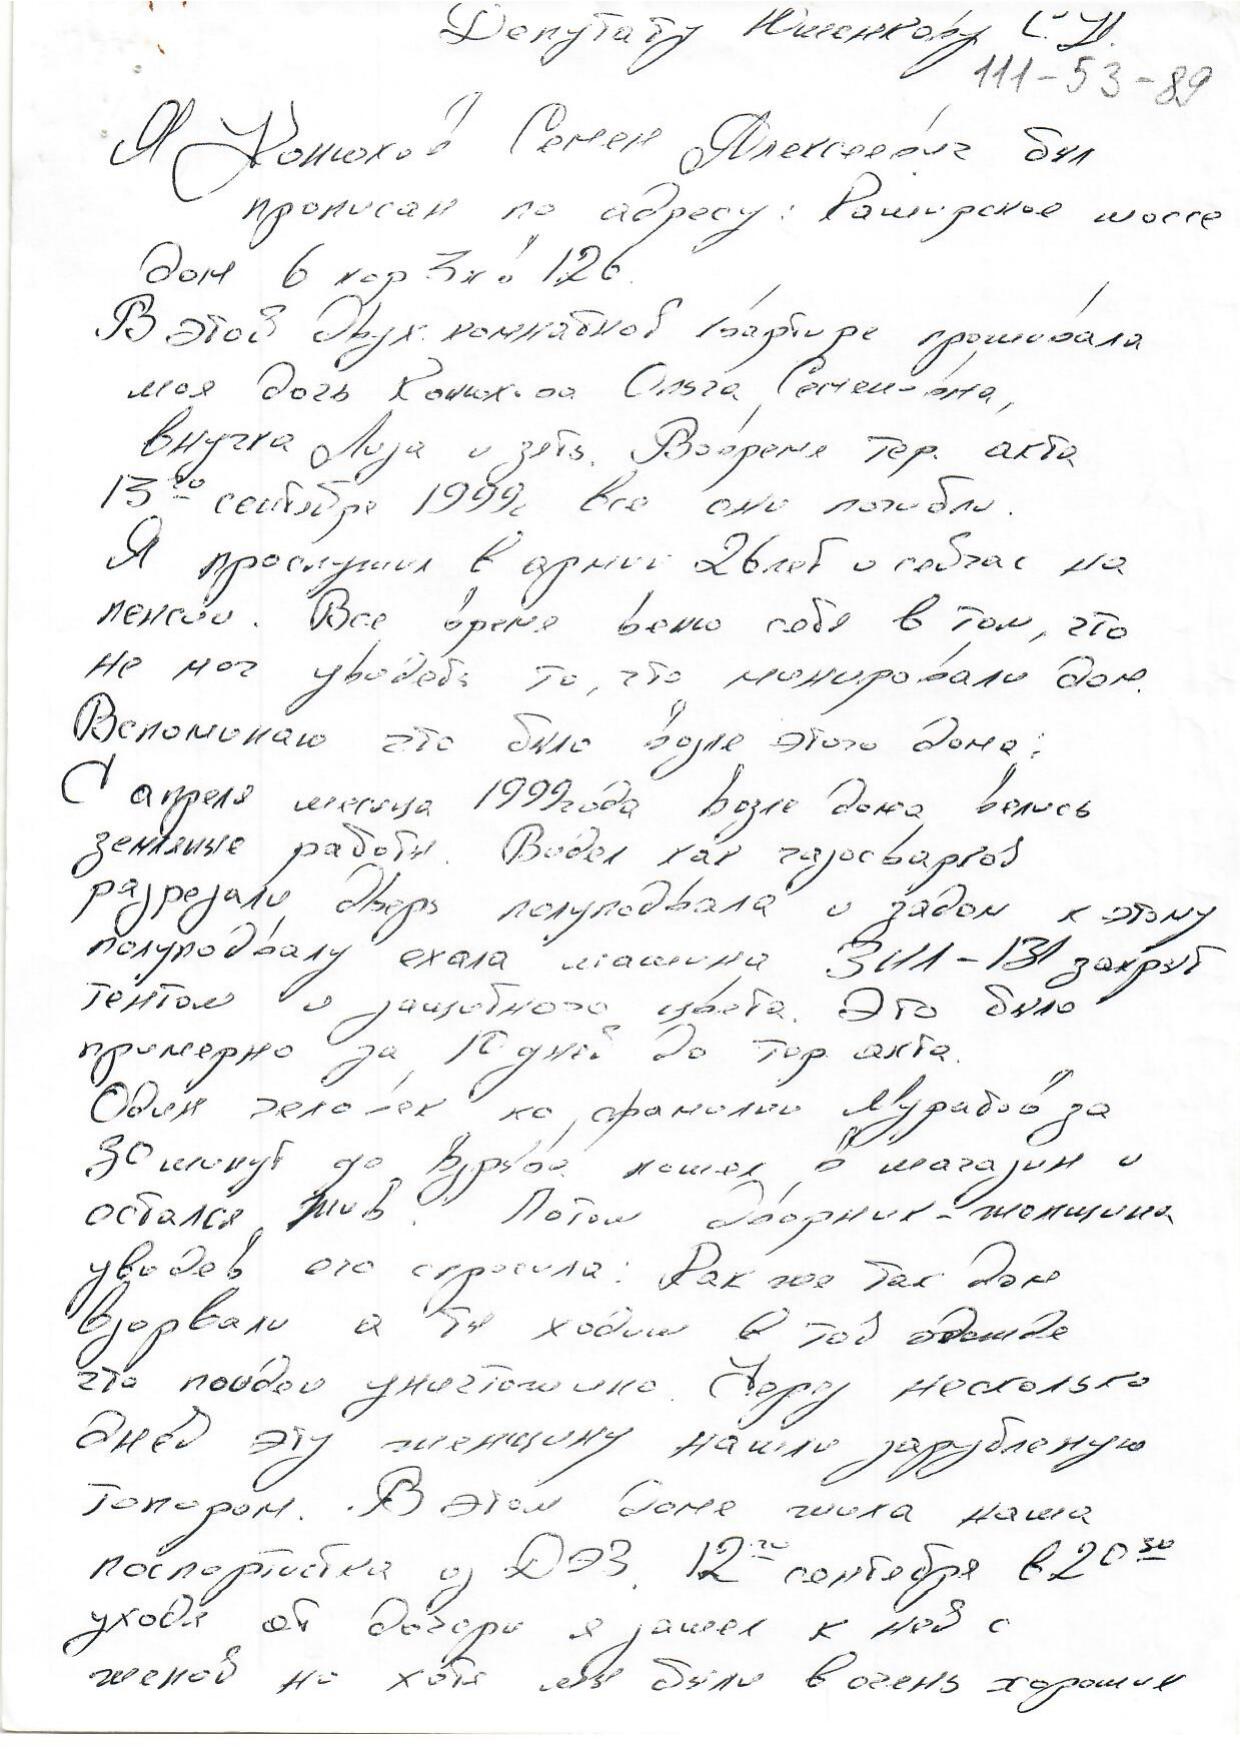 Депутату Юшенкову С.Н.
111-53-89
Я Конюхов Семен Алексеевич был
прописан по адресу: Каширское шоссе
дом 6 кор 3 кв 126.
В этой двух комнатной квартире проживала
моя дочь Конюхова Ольга Семеновна,
внучка Лиза и зять. Вовремя тер. акта
13го сентября 1999г все они погибли.
Я прослужил в армии 26 лет и сейчас на
пенсии. Все время виню себя в том, что
не мог увидеть то, что минировали дом.
Вспоминаю что было возле этого дома:
С апреля месяца 1999 года возле дома велись
земляные работы. Видел как газосваркой
разрезали дверь полуподвала и задом к этому
полуподвалу ехала машина ЗИЛ-131 закрыт
тентом и защитного цвета. Это было
примерно за 10 дней до тер. акта.
Один человек по фамилии Муратов за
30 минут до взрыва пошел в магазин и
остался жив. Потом дворник-женщина
увидев его спросила: Как же так дом
взорвали а ты ходиш в той одежде
что уничтожино. Через несколько
дней эту женщину нашли зарубленую
топором. В этом доме жила наша
паспортистка из ДЭЗ. 12го сентября в 20 30
уходя от дочери я зашел к ней с
женой но хотя мы были в очень хороших